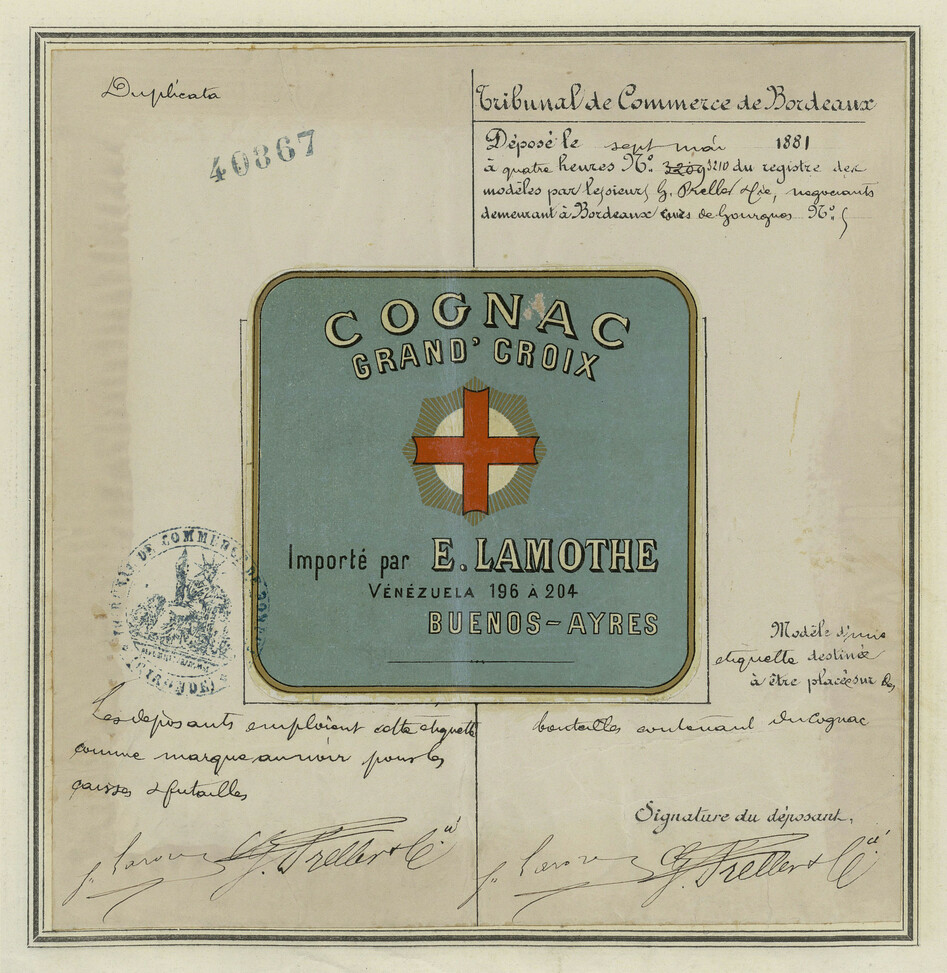 Duplicata
40867
Tribunal de Commerce de Bordeaux
Déposé le sept mai 1881
à quatre heures N°. 3209 3210 du registre des
modèles par les sieurs G. Preller & Cie, negociants
demeurant à Bordeaux cours de Gourgues N°. 5
COGNAC
GRAND' CROIX
Importé par E. LAMOTHE
VÉNÉZUELA 196 À 204
BUENOS-AYRES
TRIBUNAL DE COMMERCE DE
GIRONDE
Modèle d'une
etiquette destinée
à être placée sur les
bouteilles contenant du cognac
Les deposants emploient cette etiquette
comme marque au noir pour les
caisses & futailles
Signature du déposant,
G. Preller & Cie
G. Preller & Cie